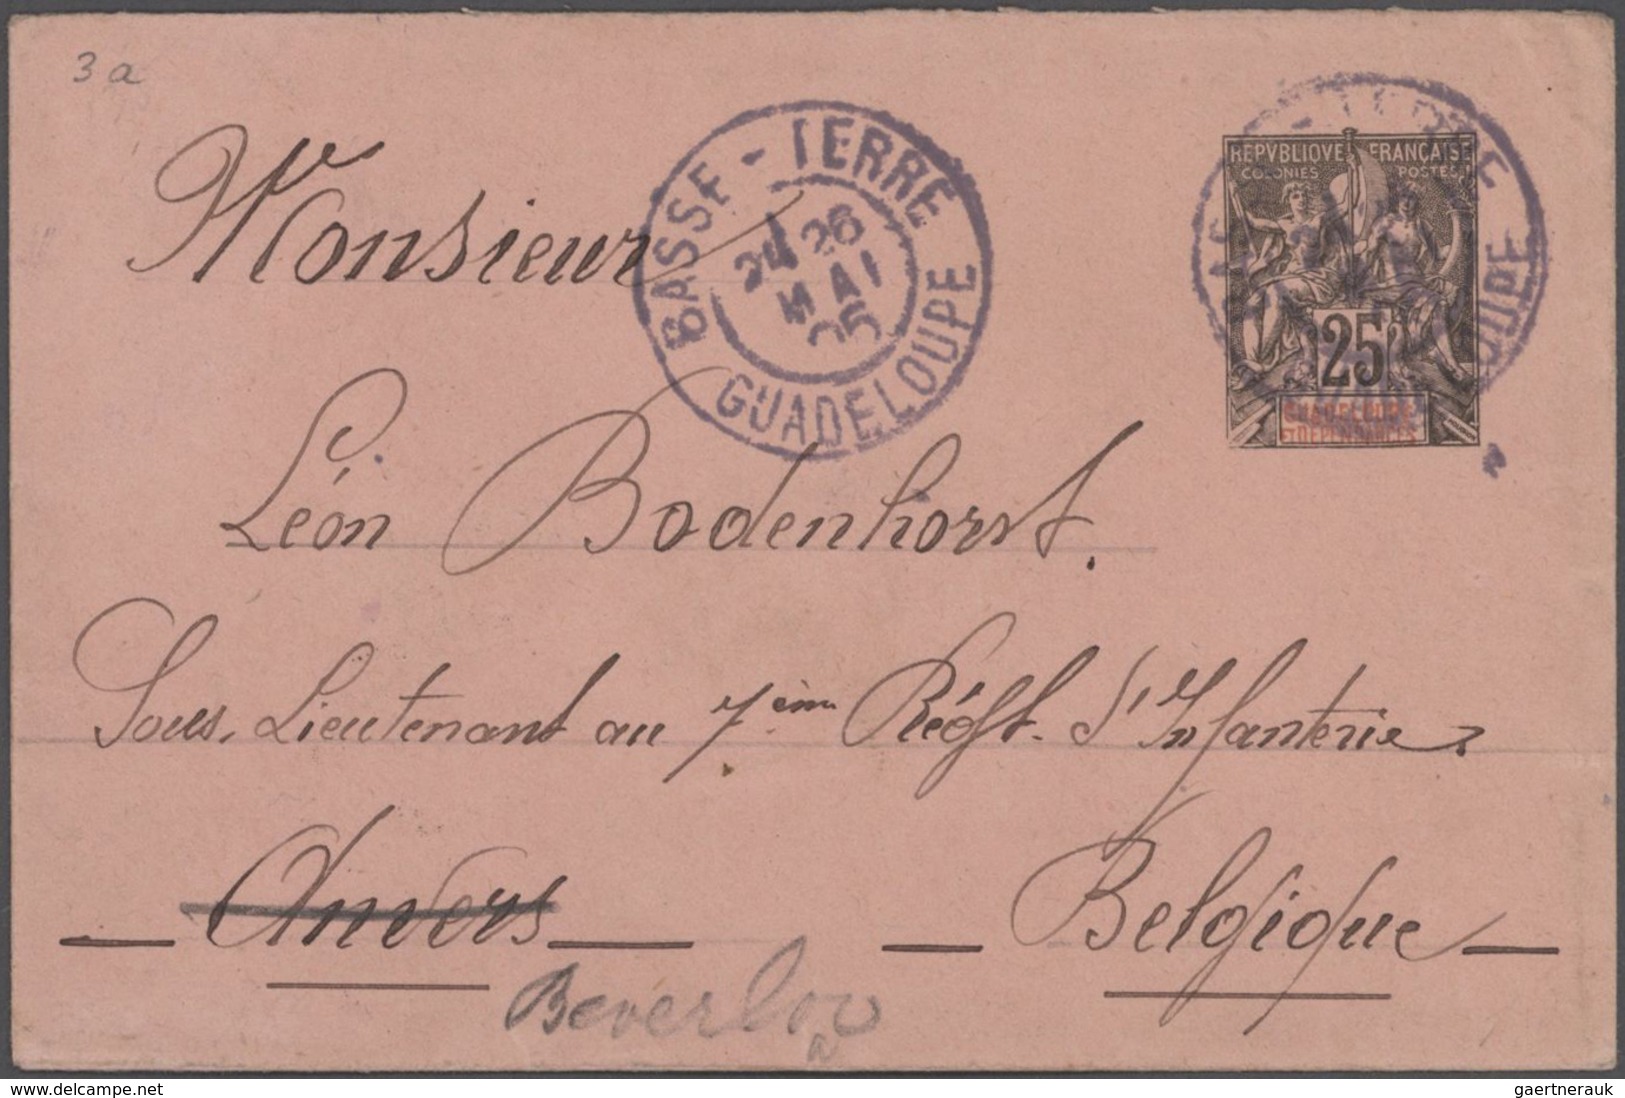 3 a
BASSE-TERRE
26
MAI
05
GUADELOUPE
REPVBLIQVE FRANÇAISE
COLONIES POSTES
25
GUADELOUPE
ET DEPENDANCES
Monsieur
Léon Bodenhorst.
Sous. Lieutenant au 7ème Régt. d'Infanterie
Anvers Belgique
Beverloo
www.delcampe.net
gaertnerauk